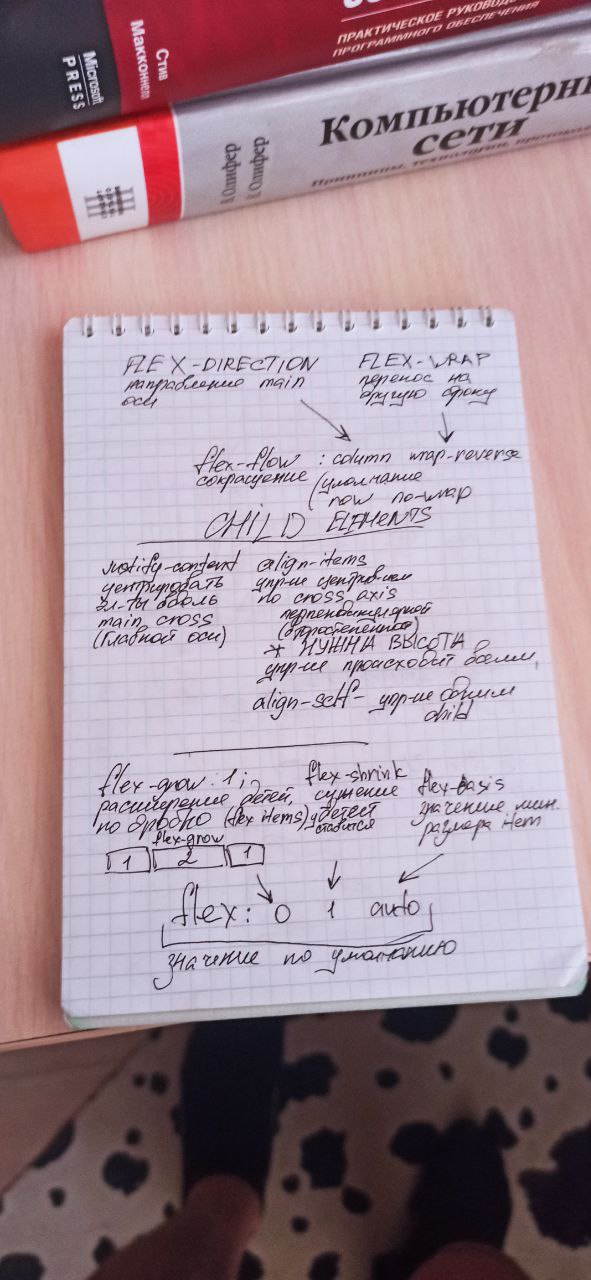 ПРАКТИЧЕСКОЕ РУКОВОД
ПРОГРАММНОГО ОБЕСПЕЧЕНИЯ
Стив
Макконнелл
Microsoft
PRESS
Компьютерн
сети
Принципы, технологии, протокол
В. Олифер
Н. Олифер
FLEX-DIRECTION
направление main
оси
FLEX-WRAP
перенос на
другую строку
flex-flow : column wrap-reverse
сокращение (умолчание
row no-wrap
CHILD ELEMENTS
justify-content
центрировать
эл-ты вдоль
main cross
(главной оси)
align-items
упр-ие центрив-ием
по cross axis
перпендикулярной
(второстепенной)
* НУЖНА ВЫСОТА
упр-ие происходит всеми,
align-self - упр-ие одним
child
flex-grow: 1;
расширение детей,
по дробно (flex items)
flex-grow
1 2 1
flex-shrink
сужение
детей
flex-basis
значение мин.
размера item
flex: 0 1 auto
значение по умолчанию